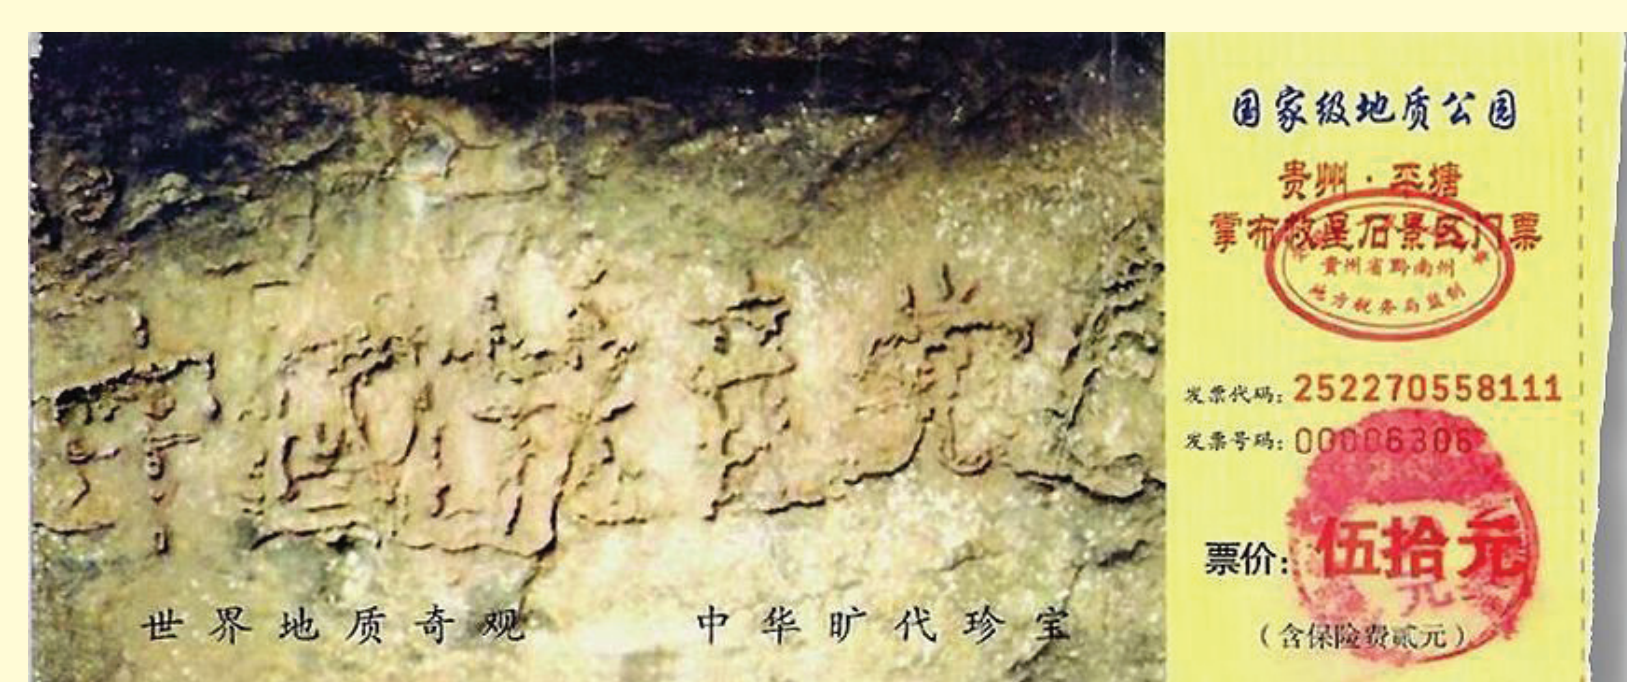 中國共产党
世界地质奇观 中华旷代珍宝
国家级地质公园
贵州·平塘
掌布救星石景区门票
貴州省黔南州
地方税务局监制
发票代码：252270558111
发票号码：00006306
票价：伍拾元
（含保险费贰元）